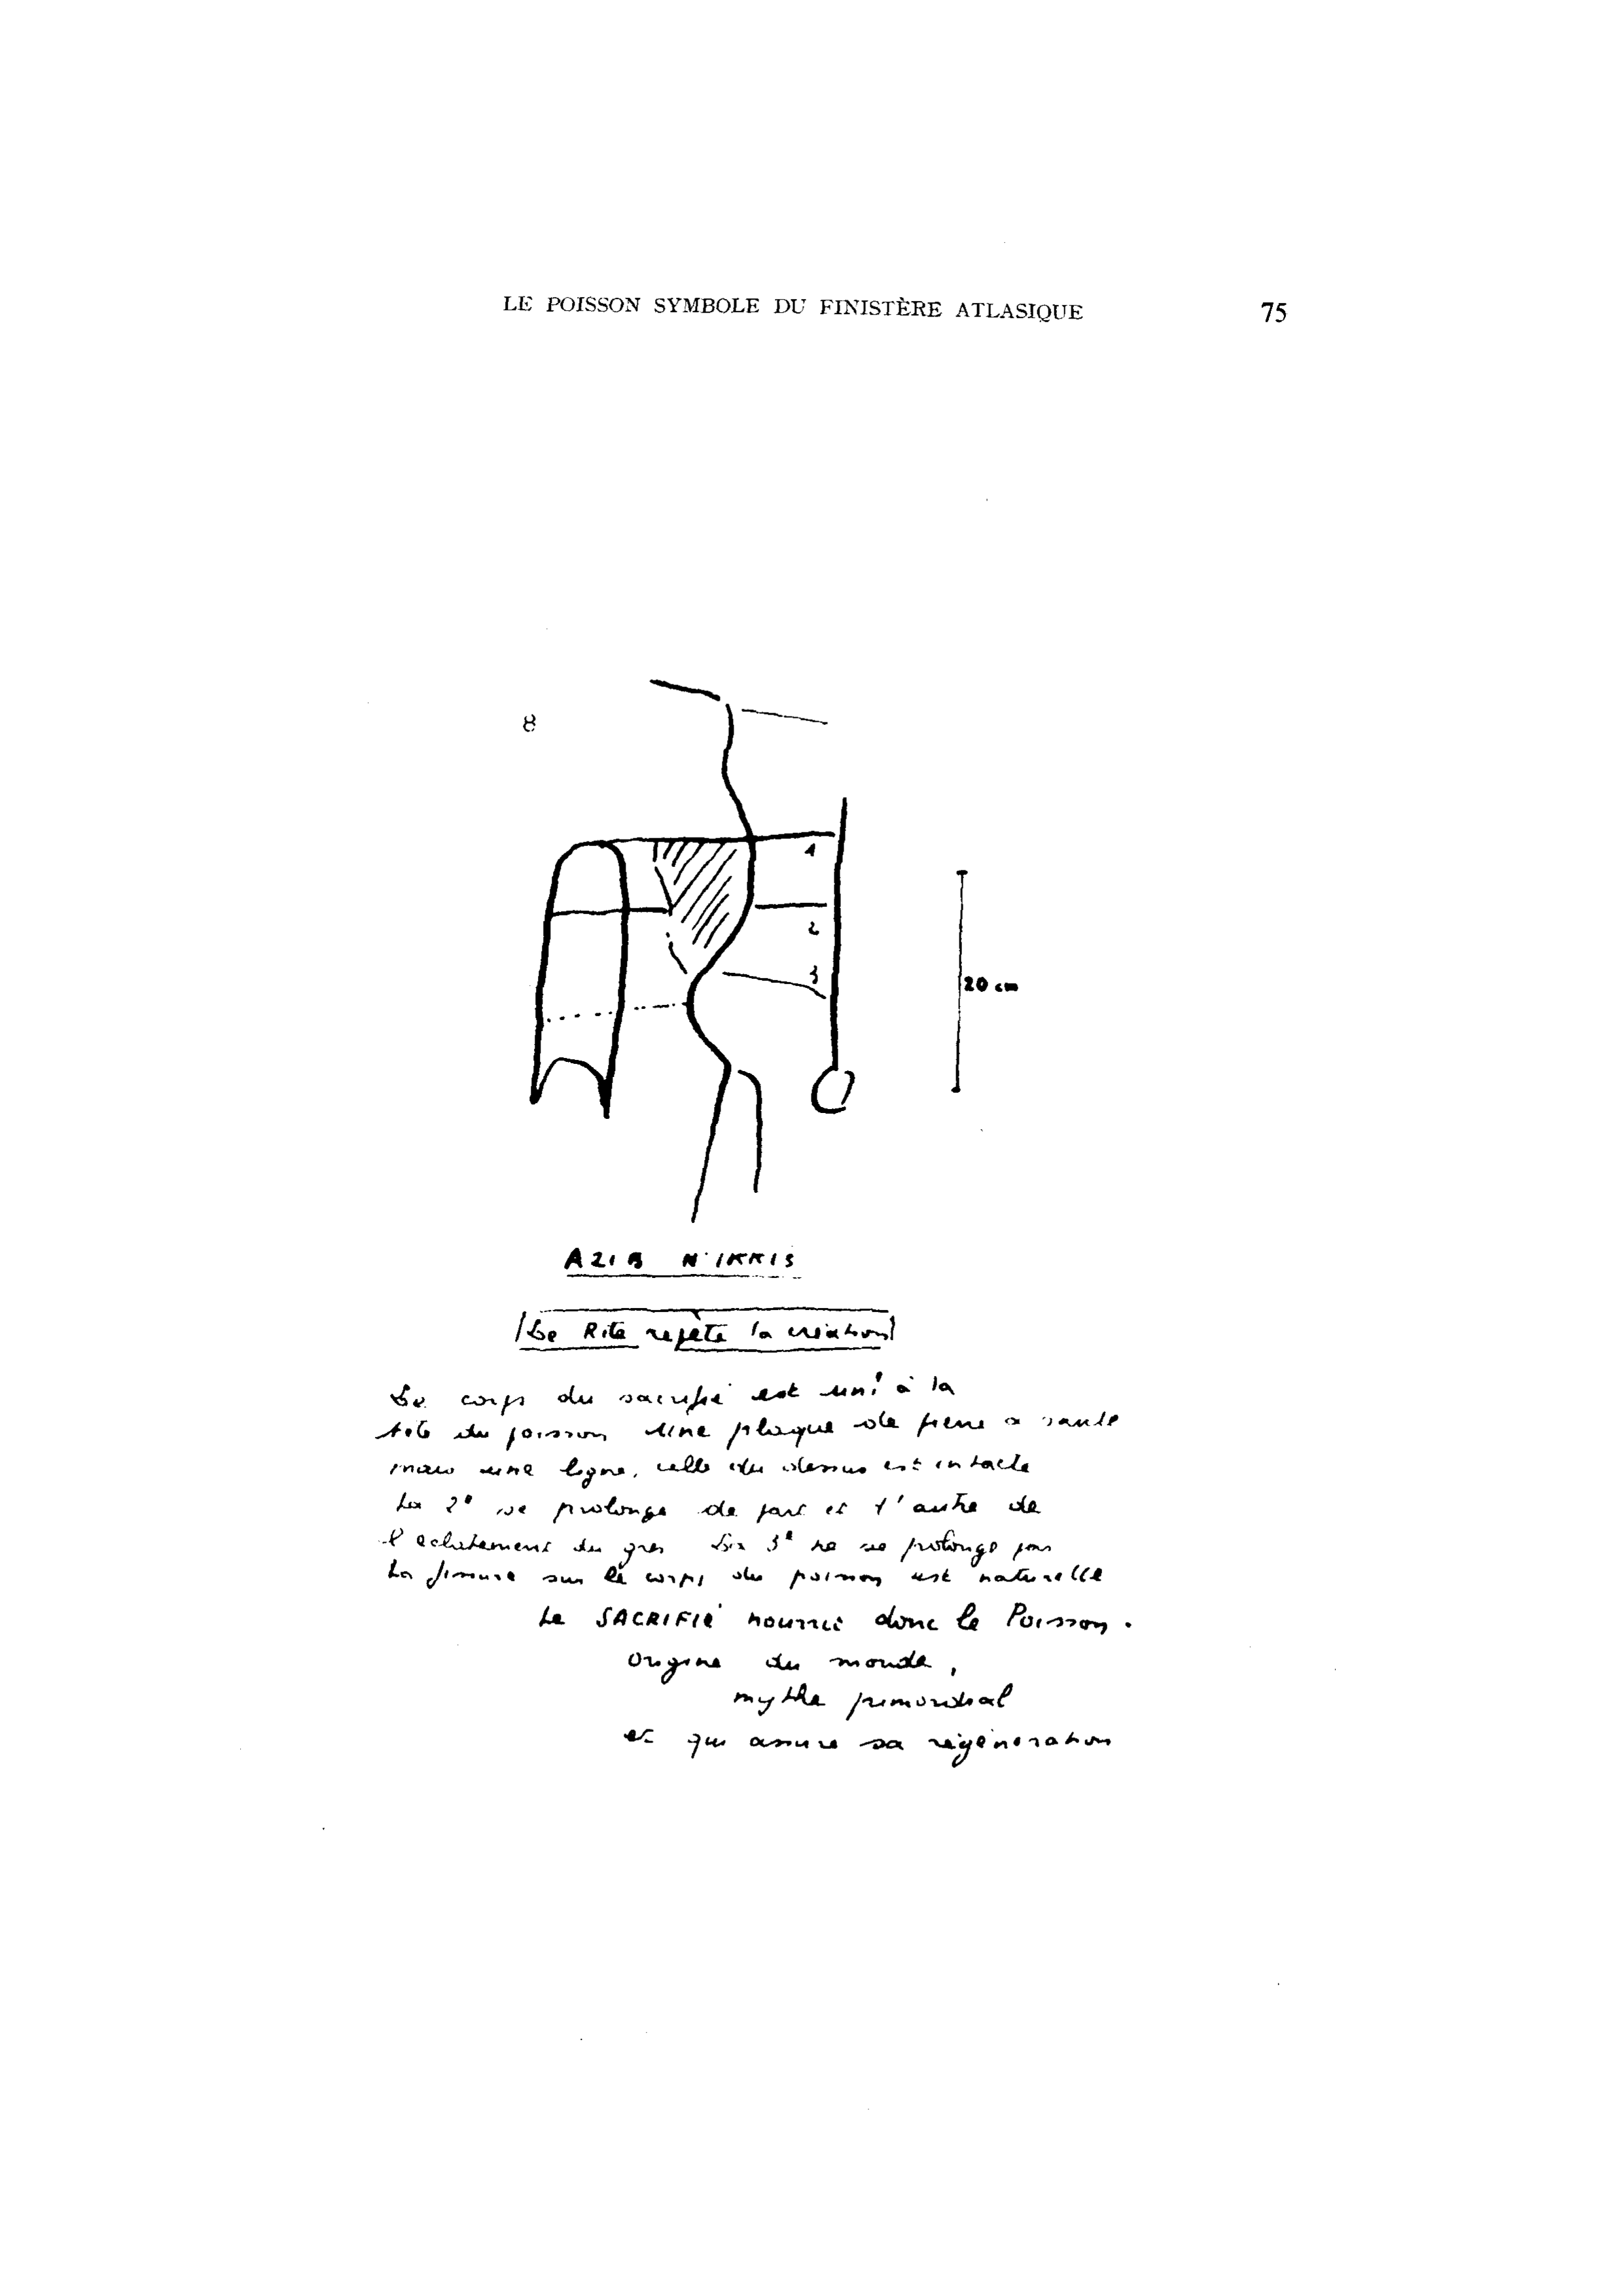 LE POISSON SYMBOLE DU FINISTÈRE ATLASIQUE 75
8
1
2
3
20 cm
AZIB N'IKKIS
Le Rite repète la création
Le corps du sacrifié est uni à la
tête du poisson Une plaque de pierre a sauté
mais une ligne, celle du dessus est intacte
La 2e se prolonge de part et d'autre de
l'eclatement du gres La 3e ne se prolonge pas
La fissure sur le corps du poisson est naturelle
Le SACRIFIÉ nourrit donc le Poisson.
origine du monde,
mythe primordial
et qui assure sa régéneration